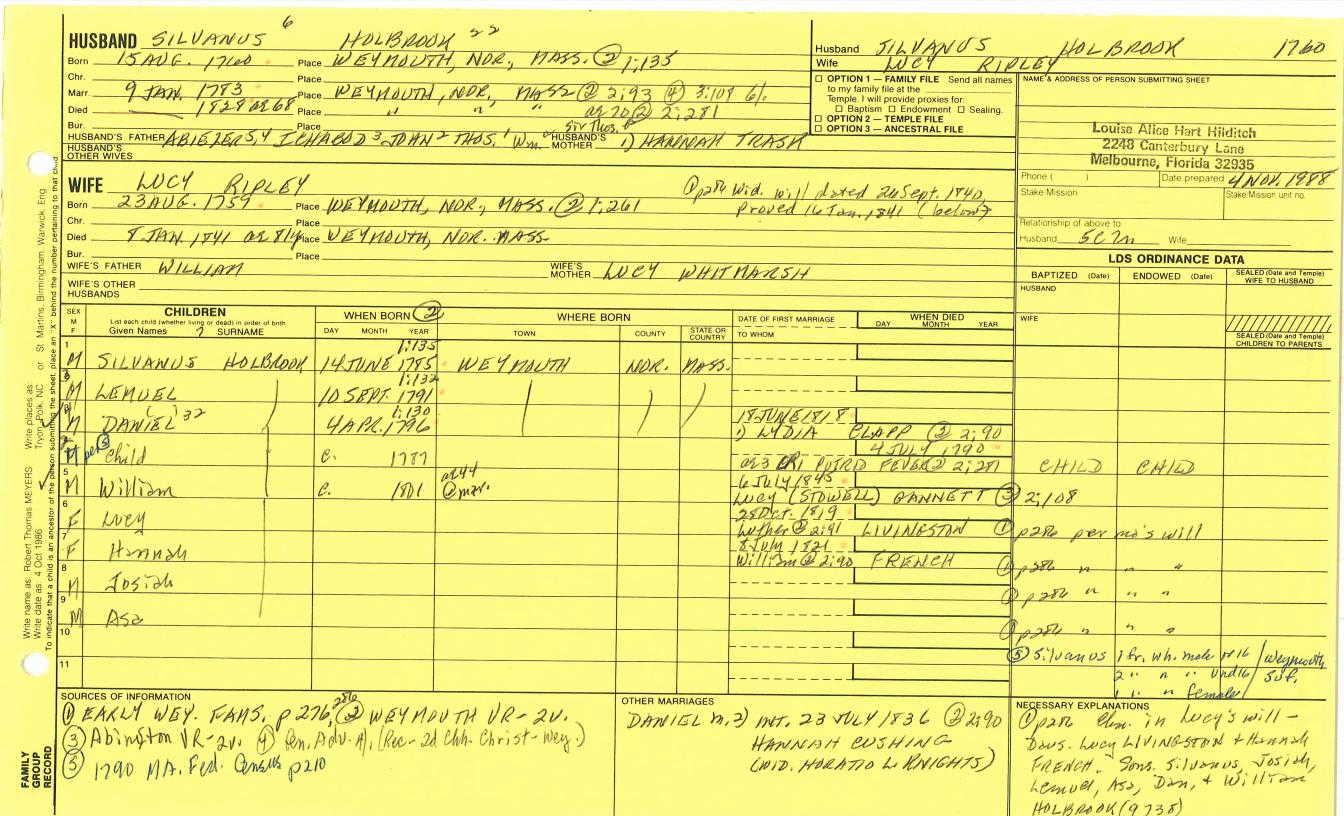 6
HUSBAND SILVANUS HOLBROOK 22
Born 15 AUG. 1760 Place WEYMOUTH, NOR., MASS. ② 1;135
Chr. Place
Marr 9 JAN. 1783 Place WEYMOUTH, NOR., MASS ② 2;93 ④ 3:108
Died 1828 ae 68 Place " " " ae 70 ② 2;281
Bur. Place
HUSBAND'S FATHER ABIEZER 5, 4 ICHABOD 3 JOHN 2 THOS. 1 Wm. HUSBAND'S MOTHER 1) HANNAH TRASK
HUSBAND'S OTHER WIVES
Husband SILVANUS HOLBROOK 1760
Wife LUCY RIPLEY
☐ OPTION 1 — FAMILY FILE Send all names
to my family file at the
Temple. I will provide proxies for:
☐ Baptism ☐ Endowment ☐ Sealing.
☐ OPTION 2 — TEMPLE FILE
☐ OPTION 3 — ANCESTRAL FILE
NAME & ADDRESS OF PERSON SUBMITTING SHEET
Louise Alice Hart Hilditch
2248 Canterbury Lane
Melbourne, Florida 32935
Phone ( ) Date prepared 4 NOV. 1988
Stake Mission Stake Mission unit no.
Relationship of above to
Husband 5C7n Wife
WIFE LUCY RIPLEY
① p286 Wid. will dated 26 Sept. 1840,
proved 16 Jan. 1841 (below)
Born 23 AUG. 1759 Place WEYMOUTH, NOR., MASS. ② 1;261
Chr. Place
Died 8 JAN. 1841 ae 81y Place WEYMOUTH, NOR. MASS
Bur. Place
WIFE'S FATHER WILLIAM WIFE'S MOTHER LUCY WHITMARSH
WIFE'S OTHER HUSBANDS
LDS ORDINANCE DATA
BAPTIZED (Date) ENDOWED (Date) SEALED (Date and Temple) WIFE TO HUSBAND
HUSBAND
WIFE
SEALED (Date and Temple) CHILDREN TO PARENTS
SEX M F CHILDREN
List each child (whether living or dead) in order of birth
Given Names 7 SURNAME
WHEN BORN ②
DAY MONTH YEAR
WHERE BORN
TOWN COUNTY STATE OR COUNTRY
DATE OF FIRST MARRIAGE
TO WHOM
WHEN DIED
DAY MONTH YEAR
1 1;135
M SILVANUS HOLBROOK 14 JUNE 1785 WEYMOUTH NOR. MASS.
1;132
M LEMUEL 10 SEPT. 1791
1;130 18 JUNE 1818
M DANIEL 32 4 APR. 1796 1) LYDIA CLAPP ② 2;90
4 JULY 1790
M per ③ Child c. 1787 ae 3 PUTRID FEVER ② 2;281 CHILD CHILD
5 ae 44 6 JULY 1845
M William c. 1801 @ mar. LUCY (STOWELL) GANNETT ③ 2;108
6 28 OCT. 1819
F Lucy Luther ② 2;91 LIVINGSTON ① p286 per mo's will
7 8 July 1821
F Hannah William ② 2;90 FRENCH ① p286 " " "
8
M Josiah ① p286 " " "
9
M Asa ① p286 " " "
10
⑤ Silvanus 1 fr. wh. male ov 16
2 " " und 16
1 " " female
Weymouth
Suf.
11
SOURCES OF INFORMATION
① EARLY WEY. FAMS. p 276, 286 ② WEYMOUTH VR-2v.
③ Abington VR-2v. ④ Gen. Adv. (Rec-2d Chh. Christ-Wey.)
⑤ 1790 MA. Fed. Census p210
OTHER MARRIAGES
DANIEL m. 2) INT. 23 JULY 1836 ② 2:90
HANNAH CUSHING
(WID. HORATIO L. KNIGHTS)
NECESSARY EXPLANATIONS
① p286 in Lucy's will —
Daus. Lucy LIVINGSTON & Hannah
FRENCH. Sons. Silvanus, Josiah,
Lemuel, Asa, Dan, & William
HOLBROOK (9738)
Write name as: Robert Thomas MEYERS Write places as: Tryon, Polk, NC or St Martins, Birmingham, Warwick, Eng
Write date as: 4 Oct 1986
To indicate that a child is an ancestor of the person submitting the sheet, place an "X" behind the number pertaining to that child
FAMILY GROUP RECORD